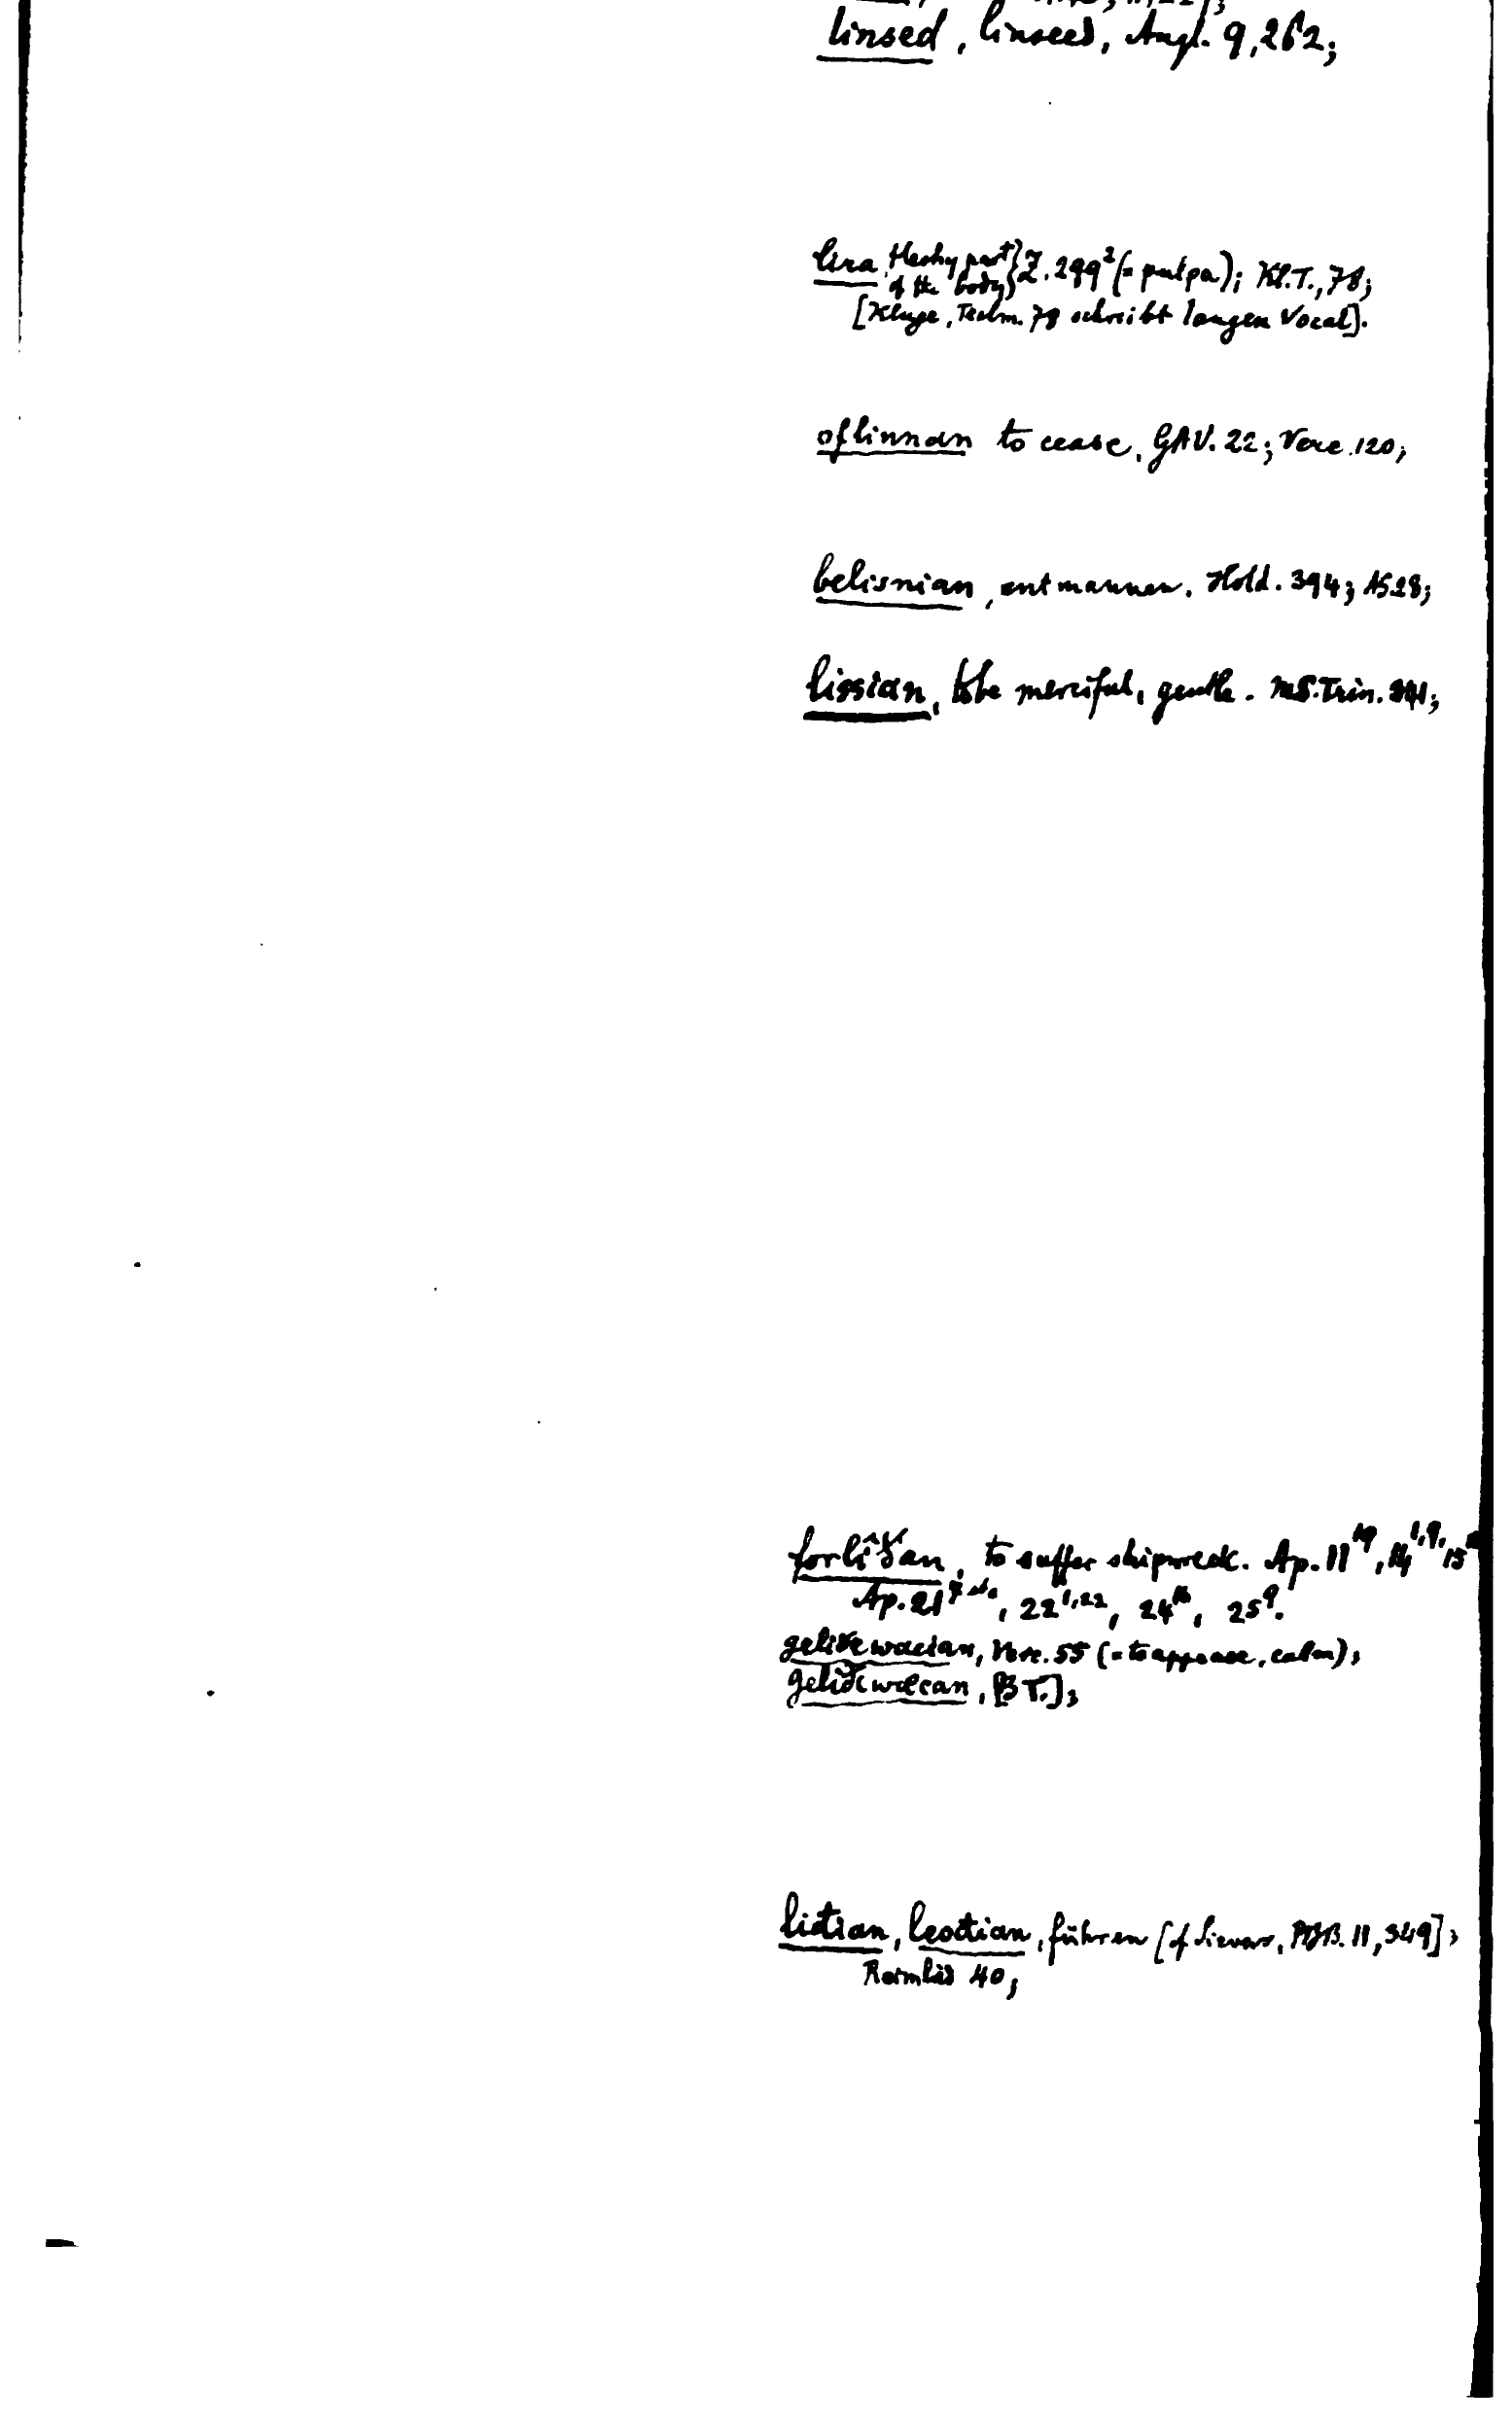 linsed, linseed, Angl. 9,262;
lira, fleshy part of the body} Z. 299² (= pulpa); Kl.T., 78;
[Kluge, Techn. 78 schreibt langen Vocal].
oflinnan to cease, GAV. 22; Verc. 120;
belisnian, entmannen. Hold. 394; AS 28;
lissian, to be merciful, gentle. MS. Trin. 241;
forlîðan, to suffer shipwreck. Ap. 11¹⁹, 14¹,⁹, 15
Ap. 21, 22¹,²², 24¹⁶, 25⁹.
geliðewacian, Verc. 55 (= to appease, calm);
geliðewæcan, BT.];
liðian, leoðian, führen [cf Sievers, PBB. 11, 349];
Reimlied 40;